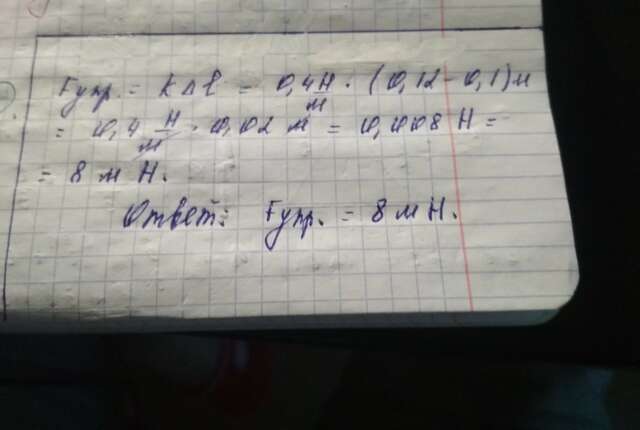 Fупр. = kΔl = 0,4 Н/м · (0,12 - 0,1) м
= 0,4 Н/м · 0,02 м = 0,008 Н =
= 8 м Н.
Ответ: Fупр. = 8 м Н.